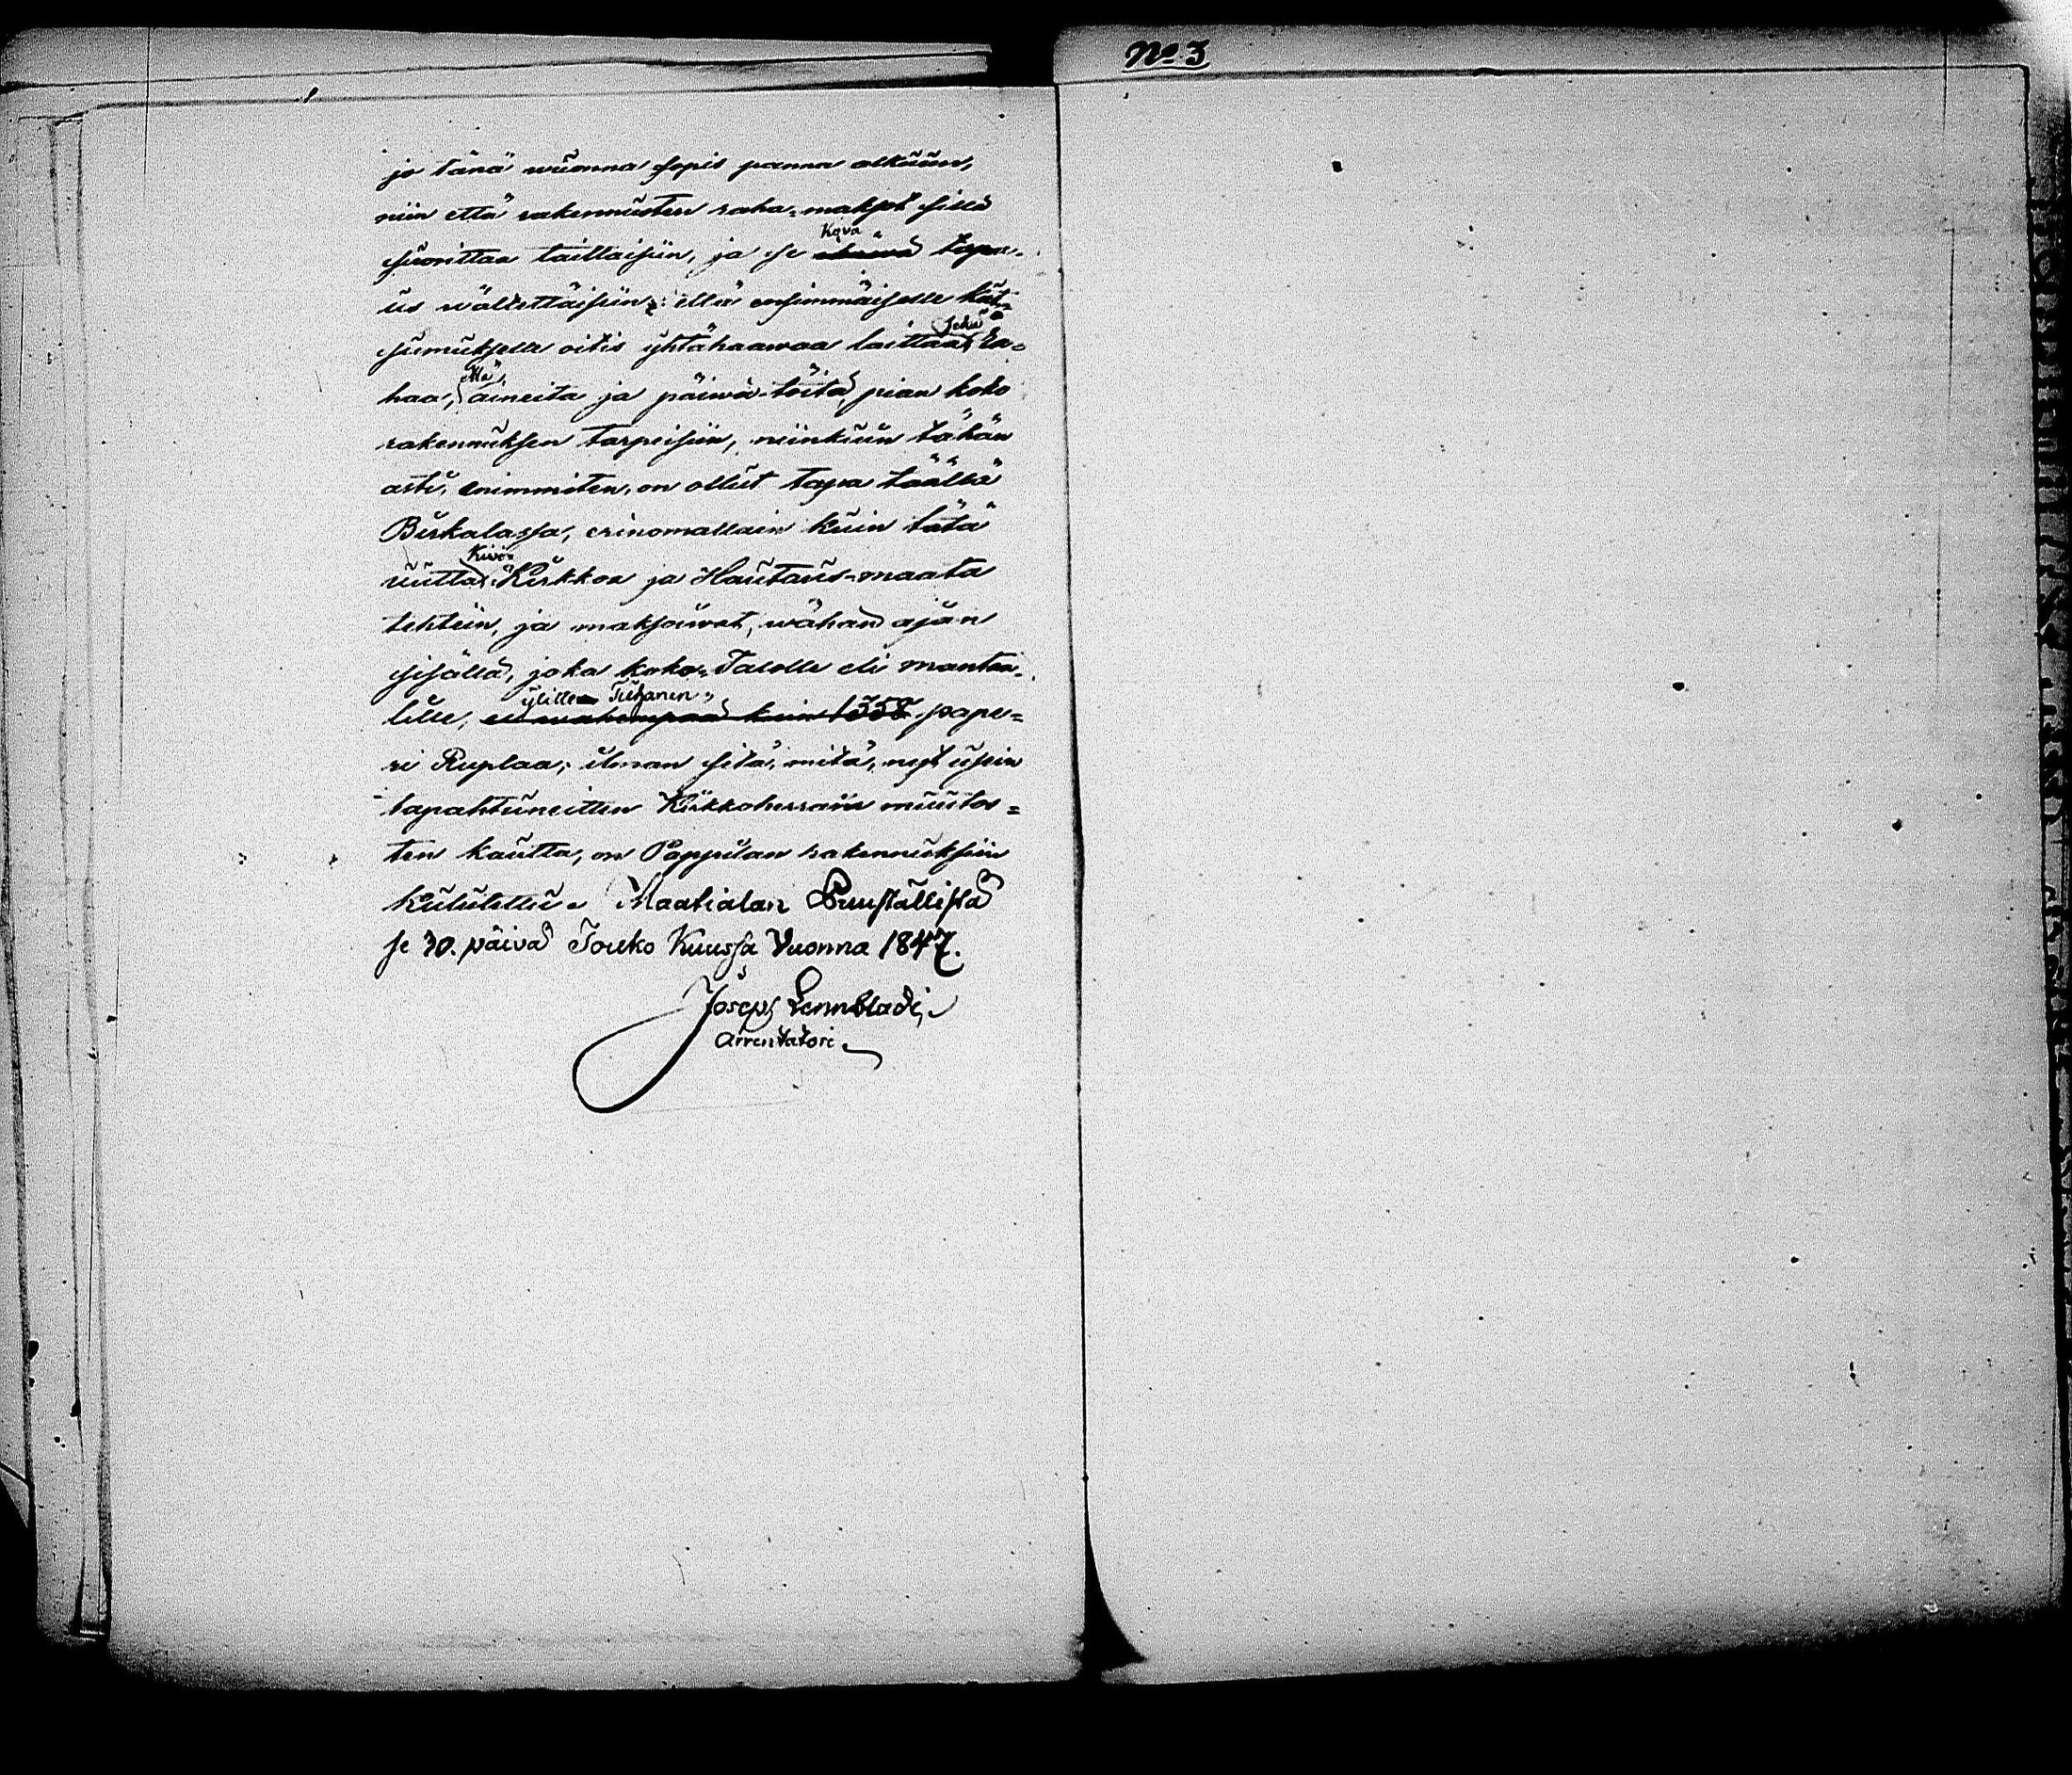 No 3
jo tänä wuonna sopis panna alkuun,
niin että rakennusten raha-maksot sillä
Kova
suorittaa taittaisiin, ja se tapa-
us wältettäisiin: että ensimmäiselle kut-
sekä
sumukselle oitis yhtähaawaa laittaa ra-
että
haa, aineita ja päiwä-töitä, pian koko
rakennuksen tarpeisiin, niinkuin tähän
asti, enimmiten, on ollut tapa täällä
Birkalassa, erinomattain kuin tätä
Kivi-
uutta Kirkkoa ja Hautaus-maata
tehtiin, ja maksoiwat, wähän ajan
sisällä, joka koko-Talolle eli mantaa-
ylitte Tuhanen
lille, ei wähempää kuin 1558 pape-
ri Ruplaa; ilman sitä, mitä, nyt usein
tapahtuneitten Kirkkoherrain muutos-
ten kautta, on Pappilan rakennuksiin
kulutettu. Maatialan Puuställistä
se 30. päivä Touko Kuussa Vuonna 1847.
Joseph Lennbladi,
Arrentatori